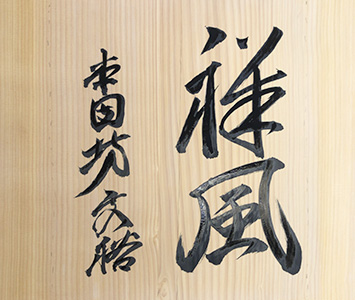 祥風
本田坊文裕